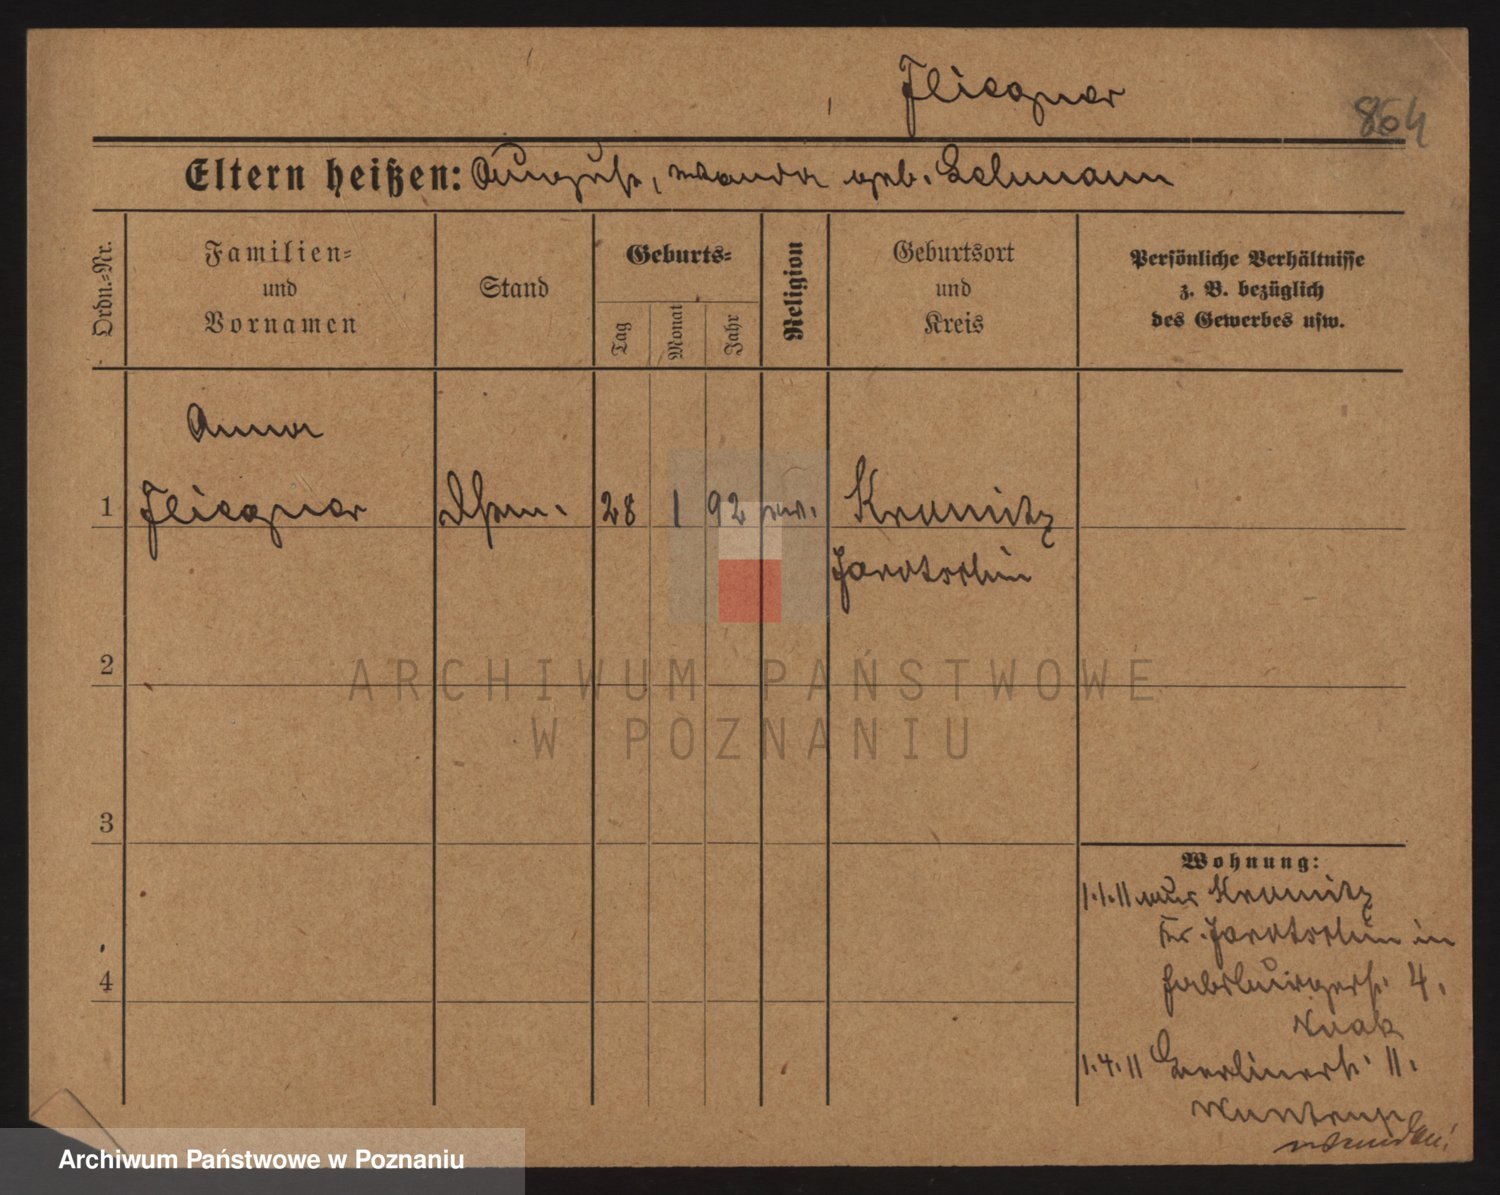 Fliegner
864
Eltern heißen: August, Wanda geb. Lehmann
Ordn.=Nr.
Familien=
und
Vornamen
Stand
Geburts=
Tag
Monat
Jahr
Religion
Geburtsort
und
Kreis
Persönliche Verhältnisse
z. B. bezüglich
des Gewerbes usw.
Anna
1 Fliegner 28 1 92 ev. Krumitz
Jarotschin
2
ARCHIWUM PAŃSTWOWE
W POZNANIU
3
Wohnung:
1.1.11 aus Krumitz
Kr. Jarotschin in
4
Habsburgerstr. 4.
1.4.11 Berlinerstr. 11.
Archiwum Państwowe w Poznaniu